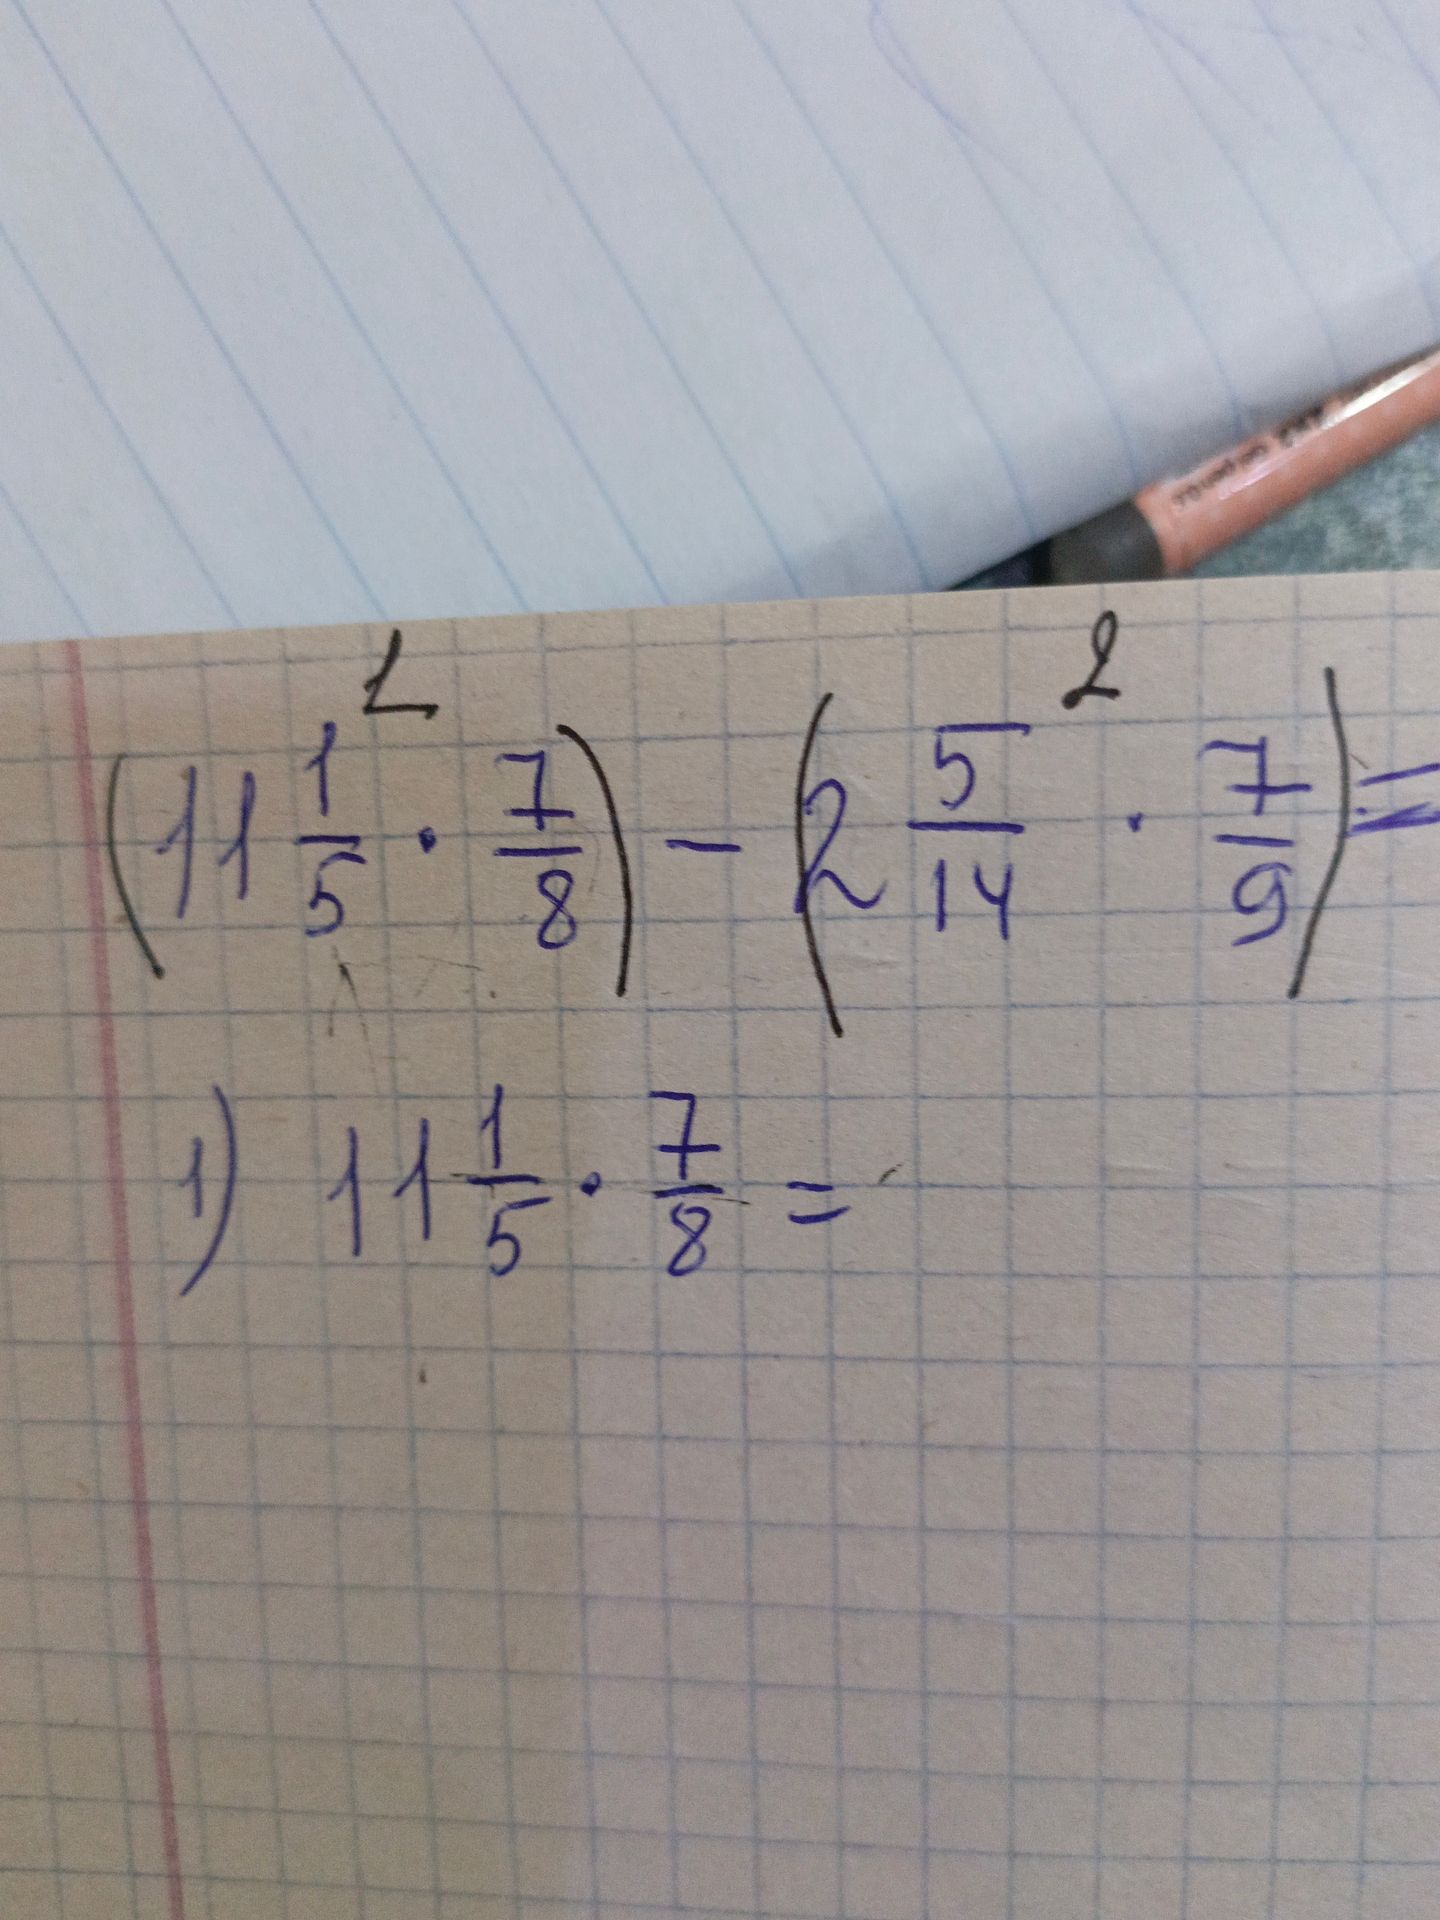 1 2
(11 1/5 · 7/8) - (2 5/14 · 7/9) =
1) 11 1/5 · 7/8 =